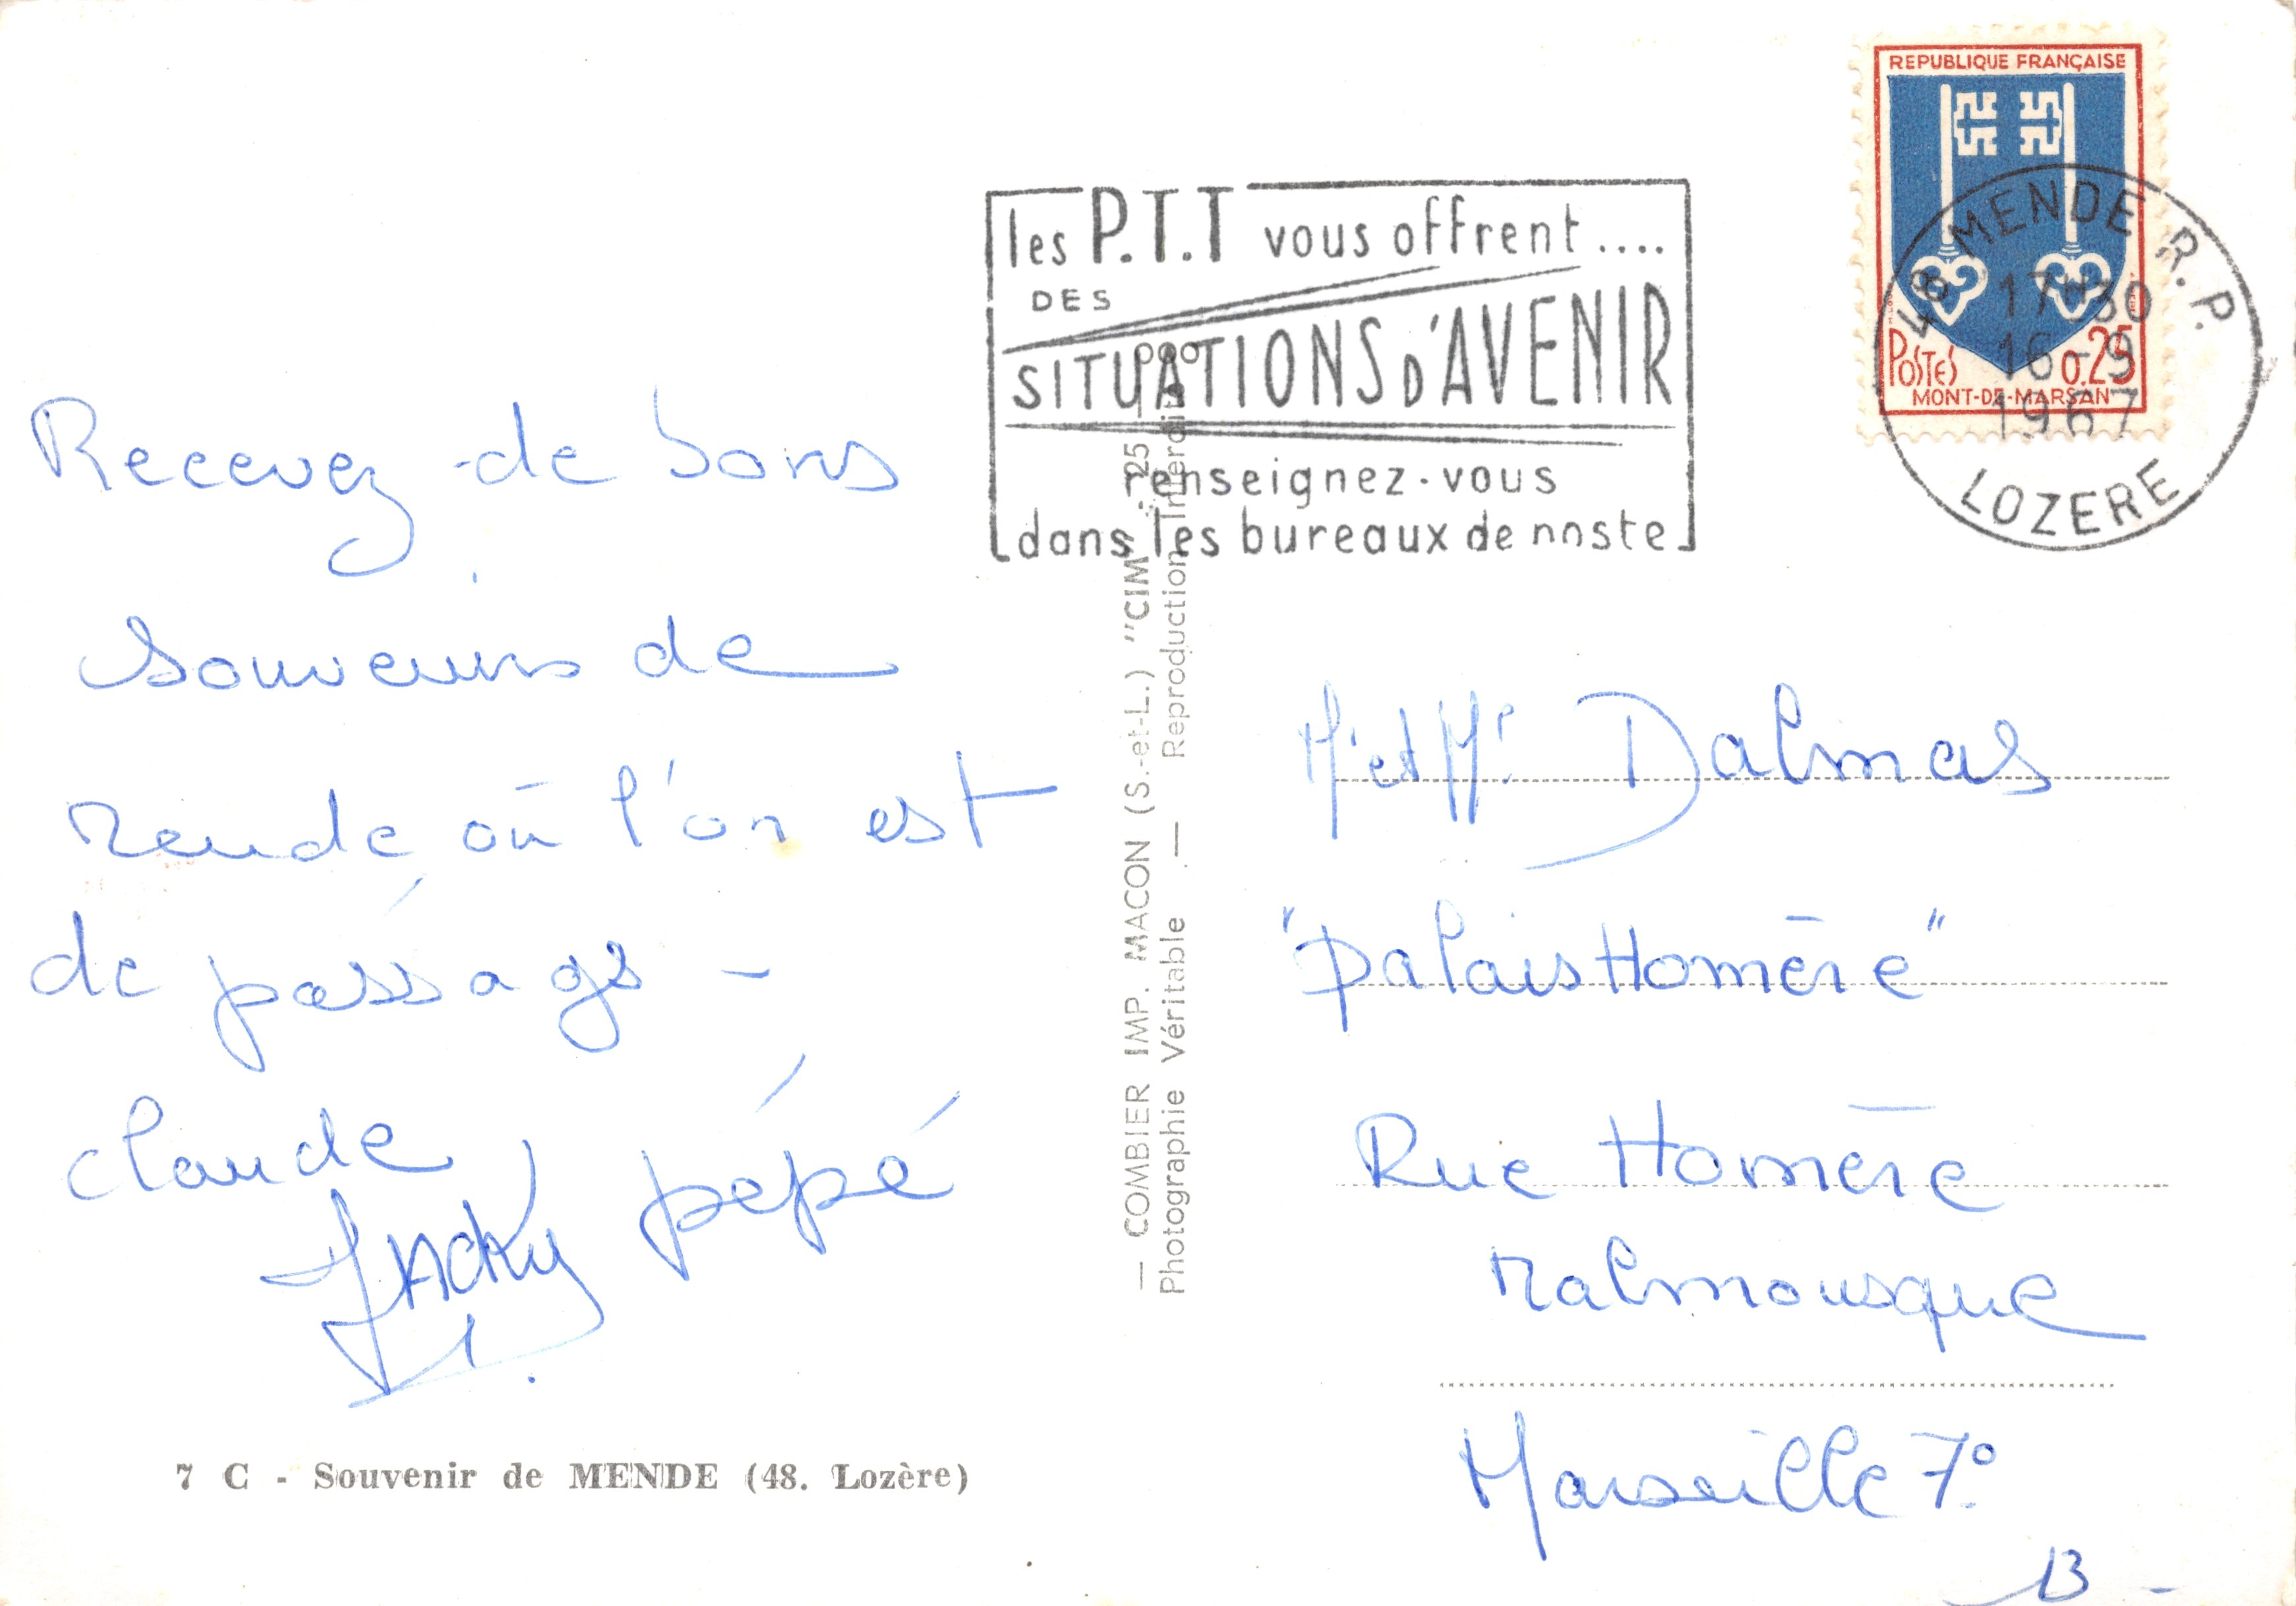 Recevez de bons
souvenirs de
Mende où l'on est
de passage -
Claude
Jacky
pépé
7 C - Souvenir de MENDE (48. Lozère)
— COMBIER IMP. MACON (S.-et-L.) "CIM"
Photographie Véritable — Reproduction Interdite
les P.T.T vous offrent ....
DES
SITUATIONS D'AVENIR
renseignez-vous
dans les bureaux de poste
REPUBLIQUE FRANÇAISE
POSTES 0,25
MONT-DE-MARSAN
48 MENDE R.P.
17H30
16-9
1967
LOZERE
Mr et Me Dalmas
"Palais Homère"
Rue Homère
Malmousque
Marseille 7°
13 -